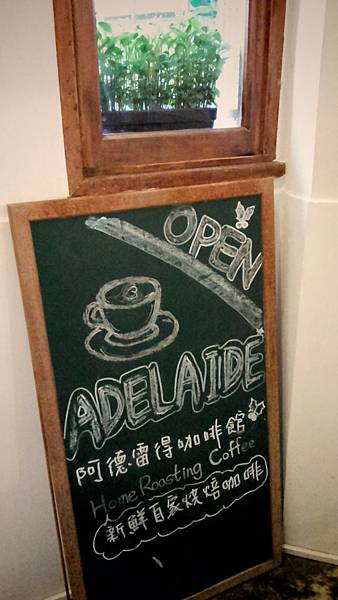 OPEN
ADELAIDE
阿德雷得咖啡館
Home Roasting Coffee
新鮮自家烧焙咖啡